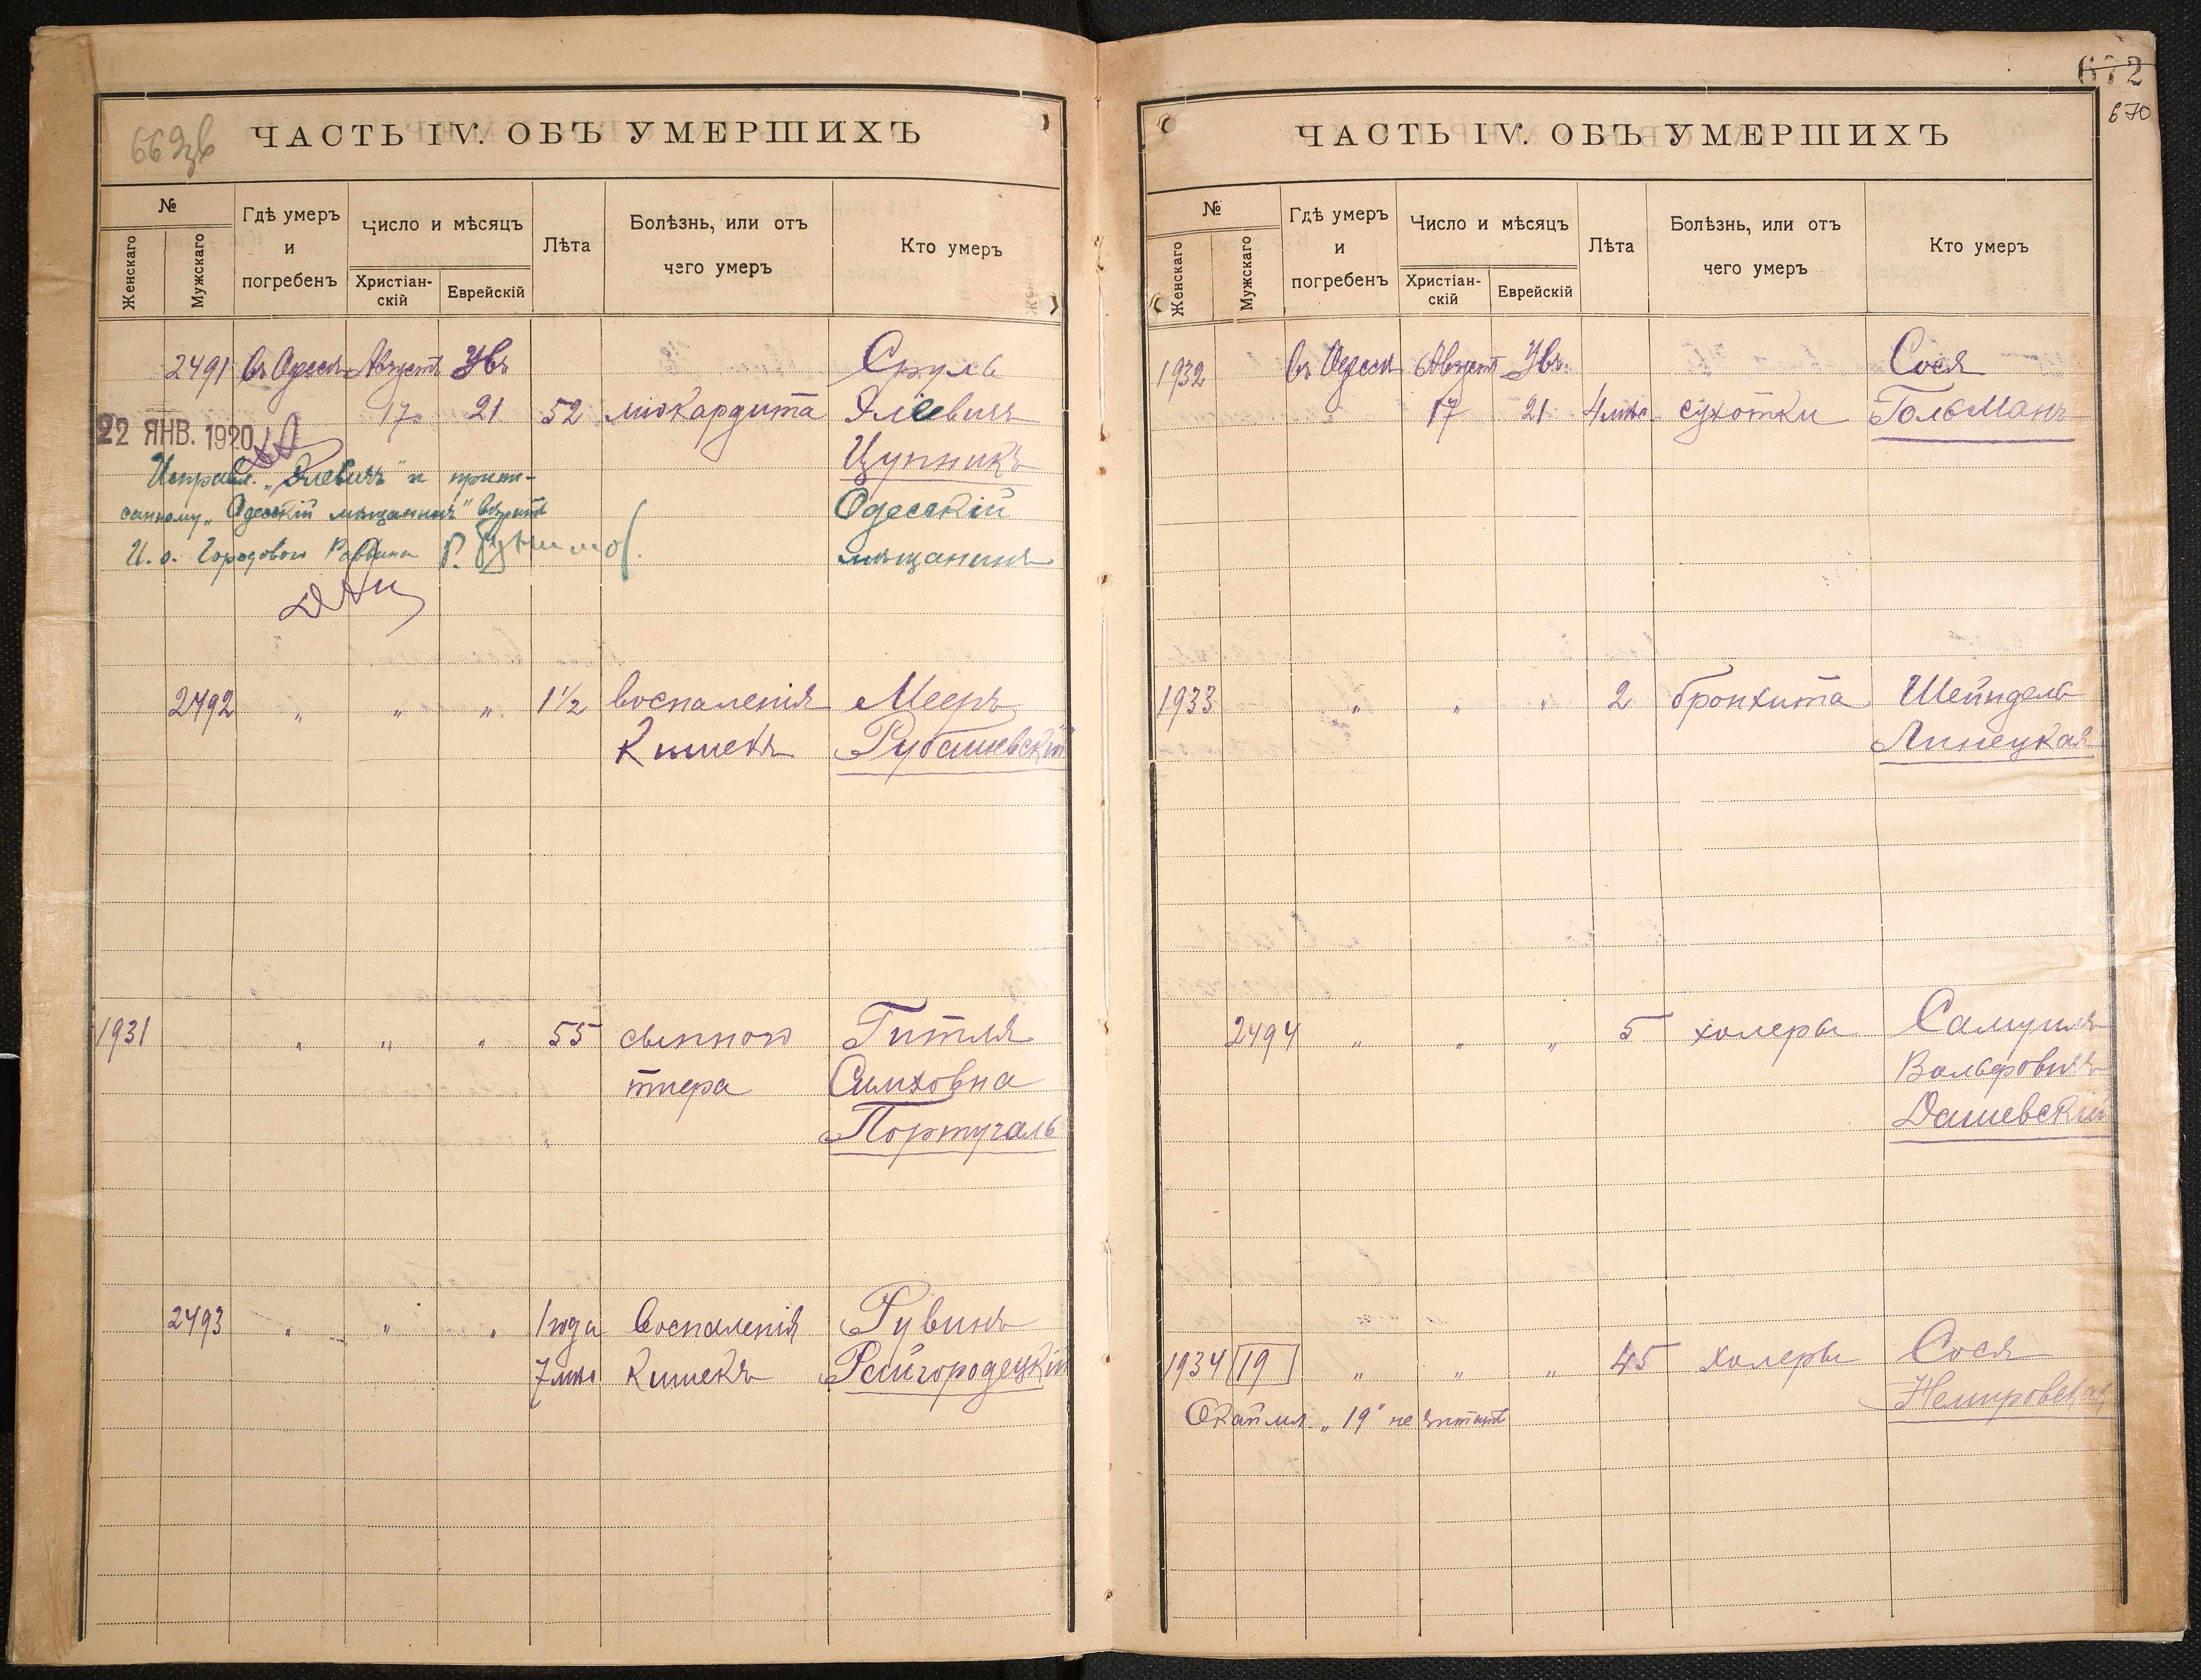 669 зв
ЧАСТЬ IV. ОБЪ УМЕРШИХЪ
№
Женскаго
Мужскаго
Гдѣ умеръ
и
погребенъ
Число и мѣсяцъ
Христіан-
скій
Еврейскій
Лѣта
Болѣзнь, или отъ
чего умеръ
Кто умеръ
2491 въ Одессѣ Августъ Увъ Сруль
17 21 52 міокардита Эліевичъ
22 ЯНВ. 1920
Цупникъ
Исправл. „Эліевичъ" и припи-
санному „Одесскій мѣщанинъ" вѣрить
Одесскій
И. о. Городового Раввина
мѣщанинъ
2492 „ „ „ 1½ воспаленія Мееръ
кишекъ Рубашевскій
1931 „ „ „ 55 сыпного Гитля
тифа Симховна
Португаль
2493 „ „ „ 1 года Воспаленія Рувинъ
7 мѣс кишекъ Райгородецкій
672
670
ЧАСТЬ IV. ОБЪ УМЕРШИХЪ
№
Женскаго
Мужскаго
Гдѣ умеръ
и
погребенъ
Число и мѣсяцъ
Христіан-
скій
Еврейскій
Лѣта
Болѣзнь, или отъ
чего умеръ
Кто умеръ
1932 въ Одессѣ Августъ Увъ Сося
17 21 4 мѣс. сухотки Гольманъ
1933 „ „ „ 2 бронхита Шейндель
Линецкая
2494 „ „ „ 5 холеры Самуилъ
Вольфовичъ
Дашевскій
1934 19 „ „ „ 45 холеры Сося
Немировская
Окаймл. „19" не читать